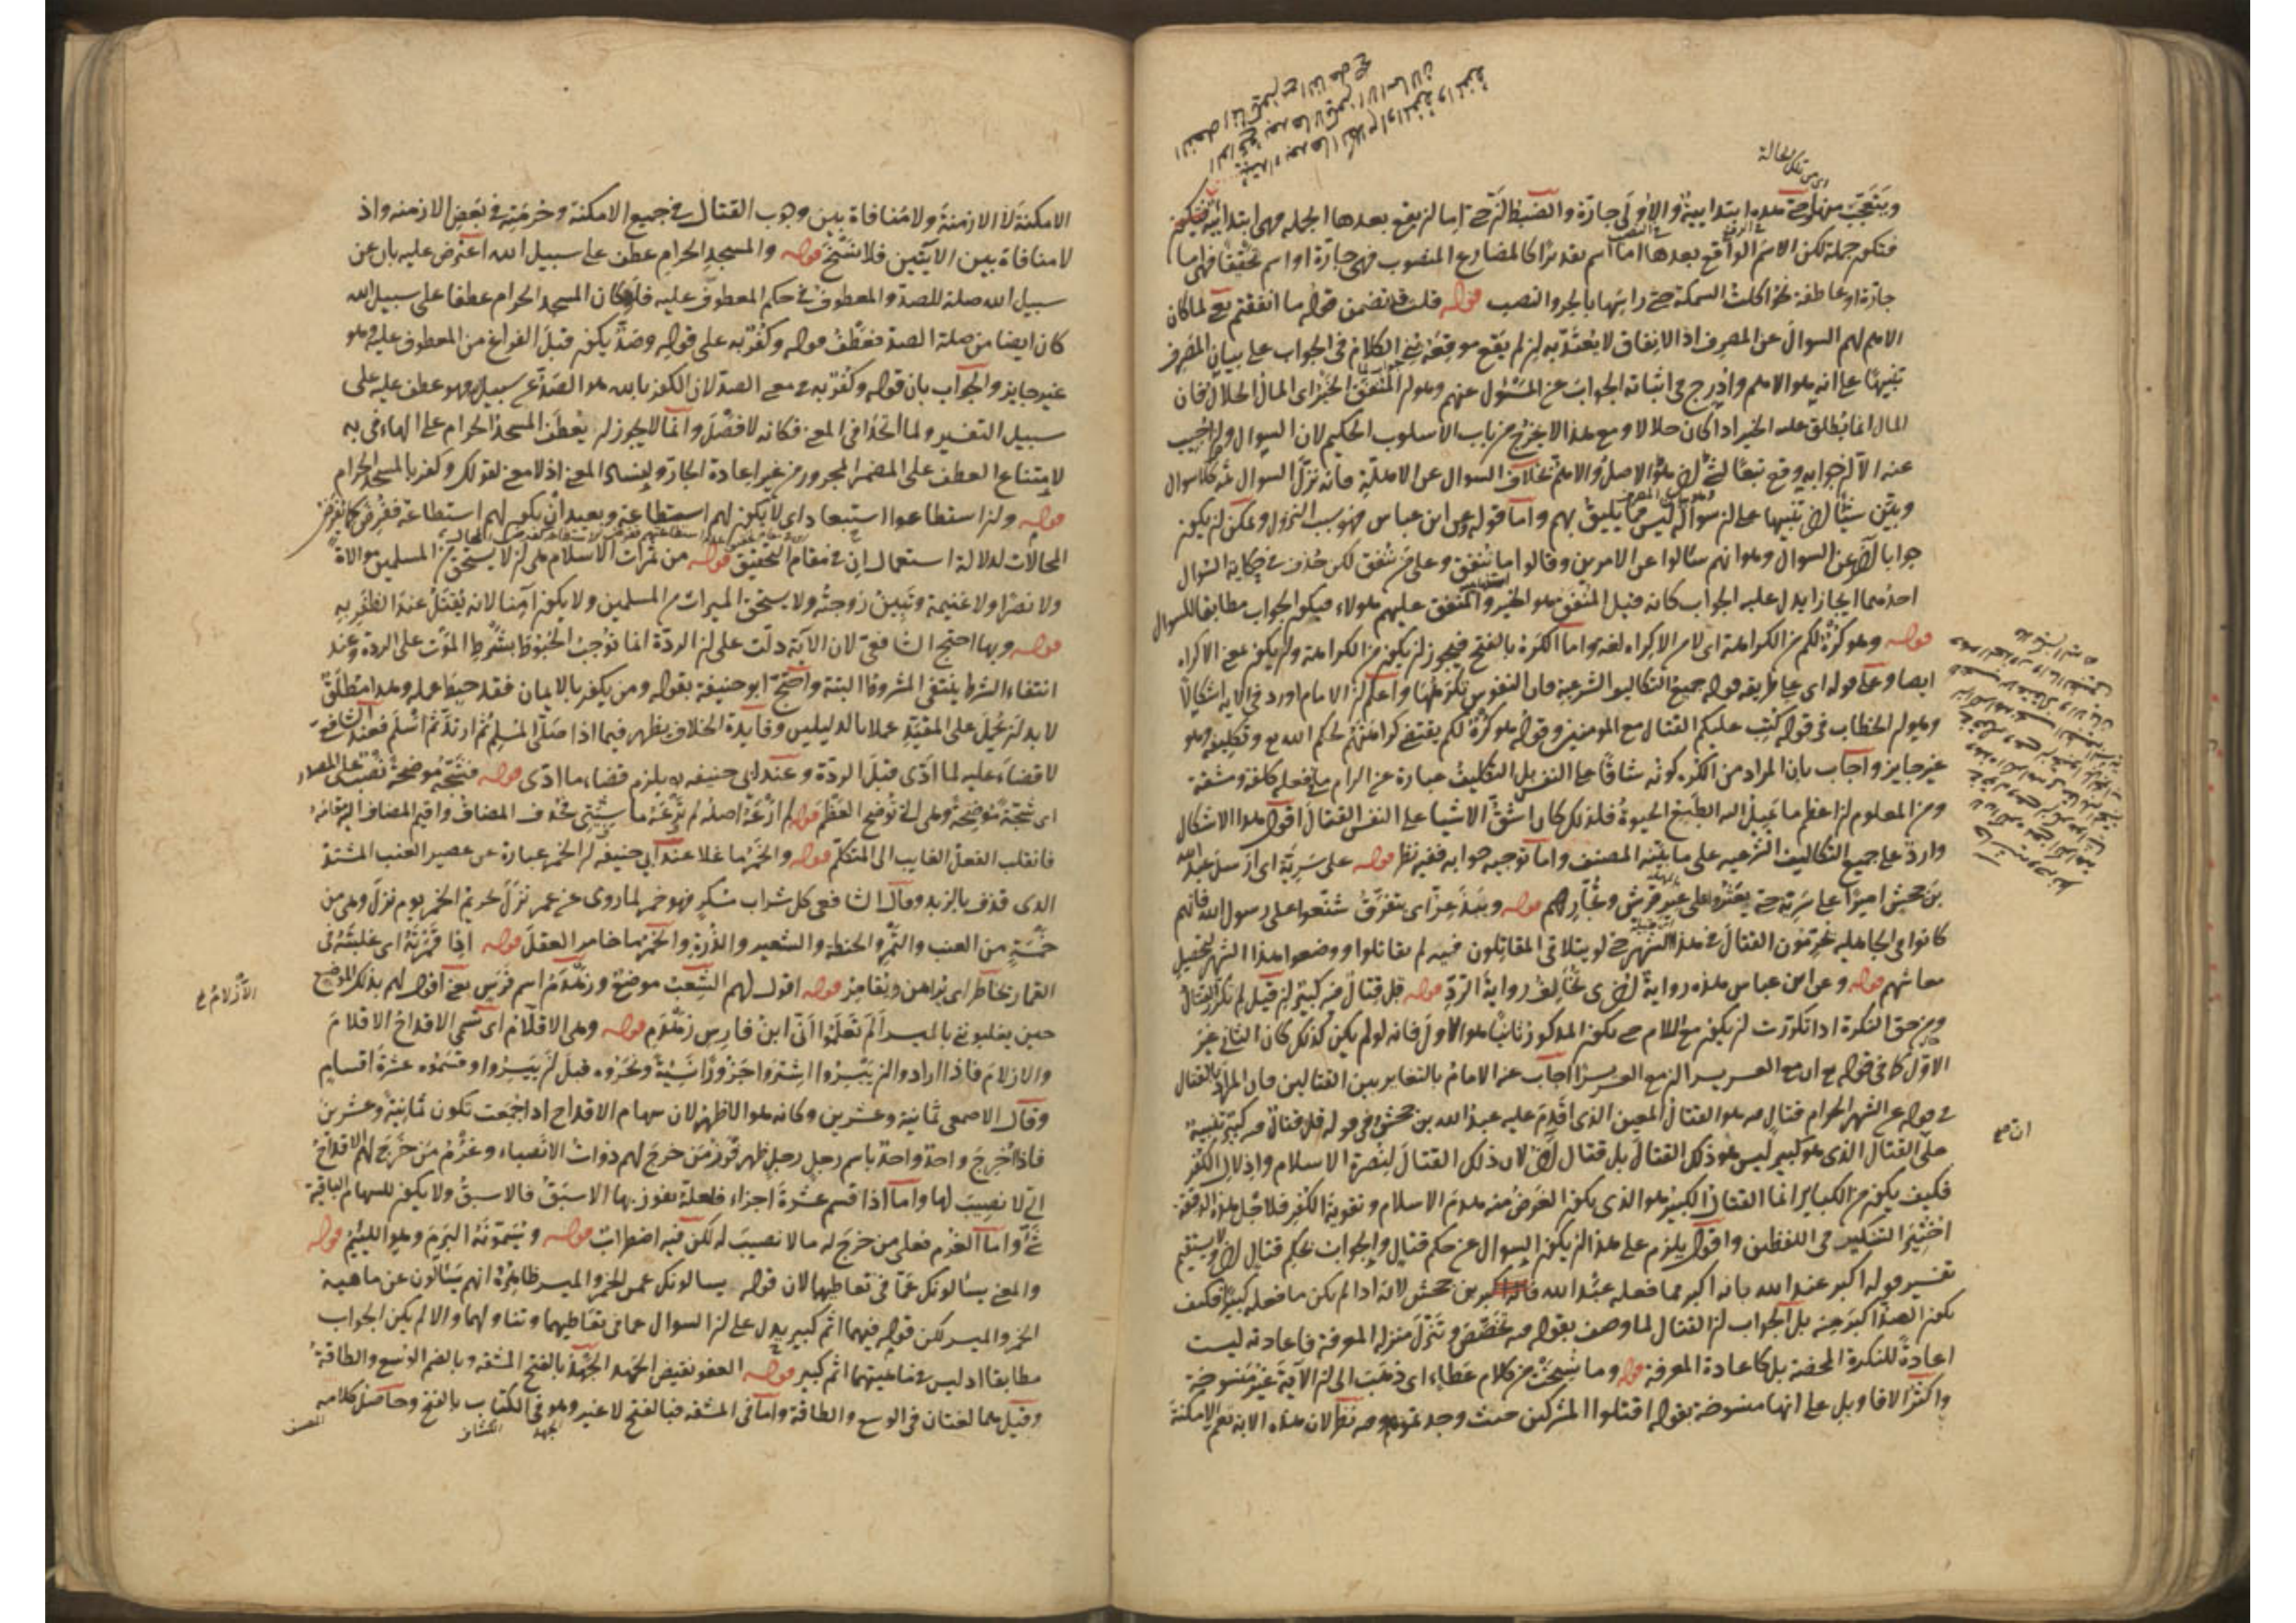 ويتعجب من حتى هذه ابتدائية والاولى جارة والضبط ان حتى اما ان يقع بعدها الجملة فهي ابتدائية
فتكون جملة لكن الاسم الواقع بعدها اما اسم تقديرا كالمضارع المنصوب فهي جارة او اسم تحقيقا فهي اما
جارة او عاطفة نحو اكلت السمكة حتى راسها بالجر والنصب قوله قلت قد تضمن قوله ما انفقتم يعني لما كان
الاهم لهم السوال عن المصرف اذ الانفاق لا يعتد به ان لم يقع موقعه بني الكلام في الجواب على بيان المصرف
تنبيها على انه هو الاهم وادرج في اثنائه الجواب عن المسئول عنهم وهو ان المنفق الخير اى المال الحلال فان
المال انما يطلق عليه الخير اذا كان حلالا ومع هذا لا يخرج من باب الاسلوب الحكيم لان السوال
عنه الا ان جوابه وقع تبعا لشئ اخر هو الاصل والاهم بخلاف السوال عن الاهلة فانه نزل السوال ثمه كلا سوال
وبين شيئا اخر تنبيها على ان سواله ليس مما يليق بهم واما قوله وعن ابن عباس فهو سبب النزول ويمكن ان يكون
جوابا اخر عن السوال وهو انهم سالوا عن الامرين وقالوا ما ننفق وعلى من ننفق لكن حذف في حكاية السوال
احدهما ايجازا يدل عليه الجواب كانه قيل المنفق هو الخير والمنفق عليهم هولاء فيكون الجواب مطابقا للسوال
قوله وهو كره لكم من الكراهة اى لا من الاكراه لغة واما الكره بالفتح فيجوز ان يكون من الكراهة وان يكون بمعنى الاكراه
ايضا وعلى قوله اى على طريقه قوله جميع التكاليف الشرعية فان النفوس تكرهها واعلم ان الامام اورد في الاية اشكالا
وهو ان الخطاب في قوله كتب عليكم القتال مع المومنين وقوله هو كره لكم يقتضي كراهتهم لحكم الله تع وتكليفه وهو
غير جايز واجاب بان المراد من الكره كونه شاقا على النفس بل التكليف عبارة عن الزام ما في فعله كلفة ومشقة
ومن المعلوم ان اعظم ما يميل اليه الطبع الحيوة فلذلك كان اشق الاشيا على النفس القتال اقول هذا الاشكال
وارد على جميع التكاليف الشرعيه على ما بينه المصنف واما توجيه جوابه ففيه نظر قوله على سرية اى ارسل عبد الله
بن جحش اميرا على سرية حتى يعثروا على عير قريش وتجارهم قوله ويبذعر اى يتفرق شنعوا على رسول الله فانهم
كانوا في الجاهلية يحرمون القتال في هذا الشهر حتى لو يتلاقى المقاتلون فيه لم يقاتلوا ووضعوا هذا الشهر لتحصيل
معاشهم قوله وعن ابن عباس هذه رواية اخرى تخالف رواية الرد قوله قل قتال فيه كبير ان قيل لم نكر القتال
ومن حق النكرة اذا تكررت ان يكون مع اللام حتى يكون المذكور ثانيا هو الاول فانه لو لم يكن كذلك كان الثاني غير
الاول كما في قوله تع ان مع العسر يسرا ان مع العسر يسرا اجاب عنه الامام بالتغاير بين القتالين فان المراد بالقتال
في قوله عن الشهر الحرام قتال فيه هو القتال المعين الذى اقدم عليه عبد الله بن جحش وفي قوله قل قتال فيه كبير تنبيه
على القتال الذى هو كبير ليس هو ذلك القتال بل قتال اخر لان ذلك القتال لنصرة الاسلام واذلال الكفر
فكيف يكون من الكباير انما القتال الكبير هو الذى يكون الغرض منه هدم الاسلام وتقوية الكفر فلاجل هذه الدقيقة
اختير التنكير في اللفظين واقول يلزم على هذا ان يكون السوال عن حكم قتال والجواب بحكم قتال اخر ولا يستقيم
تفسير قوله اكبر عند الله بانه اكبر مما فعله عبد الله بن جحش لانه اذا لم يكن ما فعله كبيرا فكيف
يكون الصد اكبر منه بل الجواب ان القتال لما وصف بقوله فيه تخصص وتنزل منزلة المعرفة فاعادته ليست
اعادة للنكرة المحضة بل كاعادة المعرفة قوله وما نسخت من كلام عطاء اى ذهب الى ان الاية غير منسوخة
واكثر الاقاويل على انها منسوخة بقوله اقتلوا المشركين حيث وجدتموهم وفيه نظر لان هذه الاية تعم الامكنة
اى من تلك الحالة
الامكنة لا الازمنة ولا منافاة بين وجوب القتال في جميع الامكنة وحرمته في بعض الازمنه واذ
لا منافاة بين الايتين فلا نسخ قوله والمسجد الحرام عطف على سبيل الله اعترض عليه بان عن
سبيل الله صلة للصد والمعطوف في حكم المعطوف عليه فلو كان المسجد الحرام عطفا على سبيل الله
كان ايضا من صلة الصد فعطف قوله وكفر به على قوله وصد يكون قبل الفراغ من المعطوف عليه وهو
غير جايز والجواب بان قوله وكفر به في معنى الصد لان الكفر بالله هو الصد عن سبيله فهو عطف عليه على
سبيل التفسير ولما اتحدا في المعنى فكانه لا فصل وانما لا يجوز ان يعطف المسجد الحرام على الهاء في به
لامتناع العطف على المضمر المجرور من غير اعادة الجار ولفساد المعنى اذ لا معنى لقولك وكفر بالمسجد الحرام
قوله وان استطاعوا استبعاد اى لا يكون لهم استطاعة وبعيد ان يكون لهم استطاعة ففرض كما يفرض
المحالات لدلالة استعمال ان في مقام التحقيق قوله من ثمرات الاسلام هى ان لا يستحق من المسلمين موالاة
ولا نصرا ولا غنيمة وتبين زوجته ولا يستحق الميراث من المسلمين ولا يكون آمنا لانه يقتل عند الظفر به
قوله وبها احتج الشافعي لان الاية دلت على ان الردة انما توجب الحبوط بشرط الموت على الردة وعند
انتفاء الشرط ينتفي المشروط البتة واحتج ابو حنيفة بقوله ومن يكفر بالايمان فقد حبط عمله وهذا مطلق
لا بد ان يحمل على المقيد عملا بالدليلين وفايدة الخلاف يظهر فيما اذا صلى المسلم ثم ارتد ثم اسلم فعند الشافعي
لا قضاء عليه لما ادى قبل الردة وعند ابي حنيفه يلزم قضاء ما ادى قوله فشجه موضحة نصب على المصدر
اى شجة موضحة وهى التى توضح العظم قوله لم ارعه اصله لم يرعه ما شيتى فحذف المضاف واقيم المضاف اليه مقامه
فانقلب الفعل الغايب الى المتكلم قوله والخمر ما غلا عند ابي حنيفة ان الخمر عبارة عن عصير العنب المشتد
الذى قذف بالزبد وقال الشافعي كل شراب مسكر فهو خمر لما روى عن عمر نزل تحريم الخمر يوم نزل وهى من
خمسة من العنب والتمر والحنطة والشعير والذرة والخمر ما خامر العقل قوله اذا قمرته اى غلبته في
القمار يخاطر اى يراهن ويقامر قوله اقول لهم الشعب موضع وزهدم اسم فرس يعني اقول لهم بذلك الموضع
حين يغلبونني بالميسر الم تعلموا انى ابن فارس زهدم قوله وهى الاقلام اى تسمى الاقداح الاقلام
والازلام فاذا ارادوا ان ييسروا اشتروا جزورا نسيئة ونحروه قبل ان ييسروا وقسموه عشرة اقسام
وقال الاصمعي ثمانية وعشرين وكانه هو الاظهر لان سهام الاقداح اذا جمعت تكون ثمانية وعشرين
فاذا خرج واحد واحد باسم رجل رجل ظهر فوز من خرج لهم ذوات الانصباء وغرم من خرج لهم الاقداح
التى لا نصيب لها واما اذا قسم عشرة اجزاء فلعله يفوز بها الاسبق فالاسبق ولا يكون للسهام الباقية
شئ واما الغرم فعلى من خرج له ما لا نصيب له لكن فيه اضطراب قوله ويسمونه البرم وهو اللئيم قوله
والمعنى يسئالونك عما في تعاطيهما لان قوله يسالونك عن الخمر والميسر ظاهره انهم يسئالون عن ماهية
الخمر والميسر لكن قوله فيهما اثم كبير يدل على ان السوال عما في تعاطيهما وتناولهما والا لم يكن الجواب
مطابقا اذ ليس في ماهيتهما اثم كبير قوله العفو نقيض الجهد الجهد بالفتح المشقه وبالضم الوسع والطاقة
وقيل هما لغتان في الوسع والطاقة واما في المشقه فبالفتح لا غير وهو في الكتاب بالفتح وحاصل كلامه
الازلام